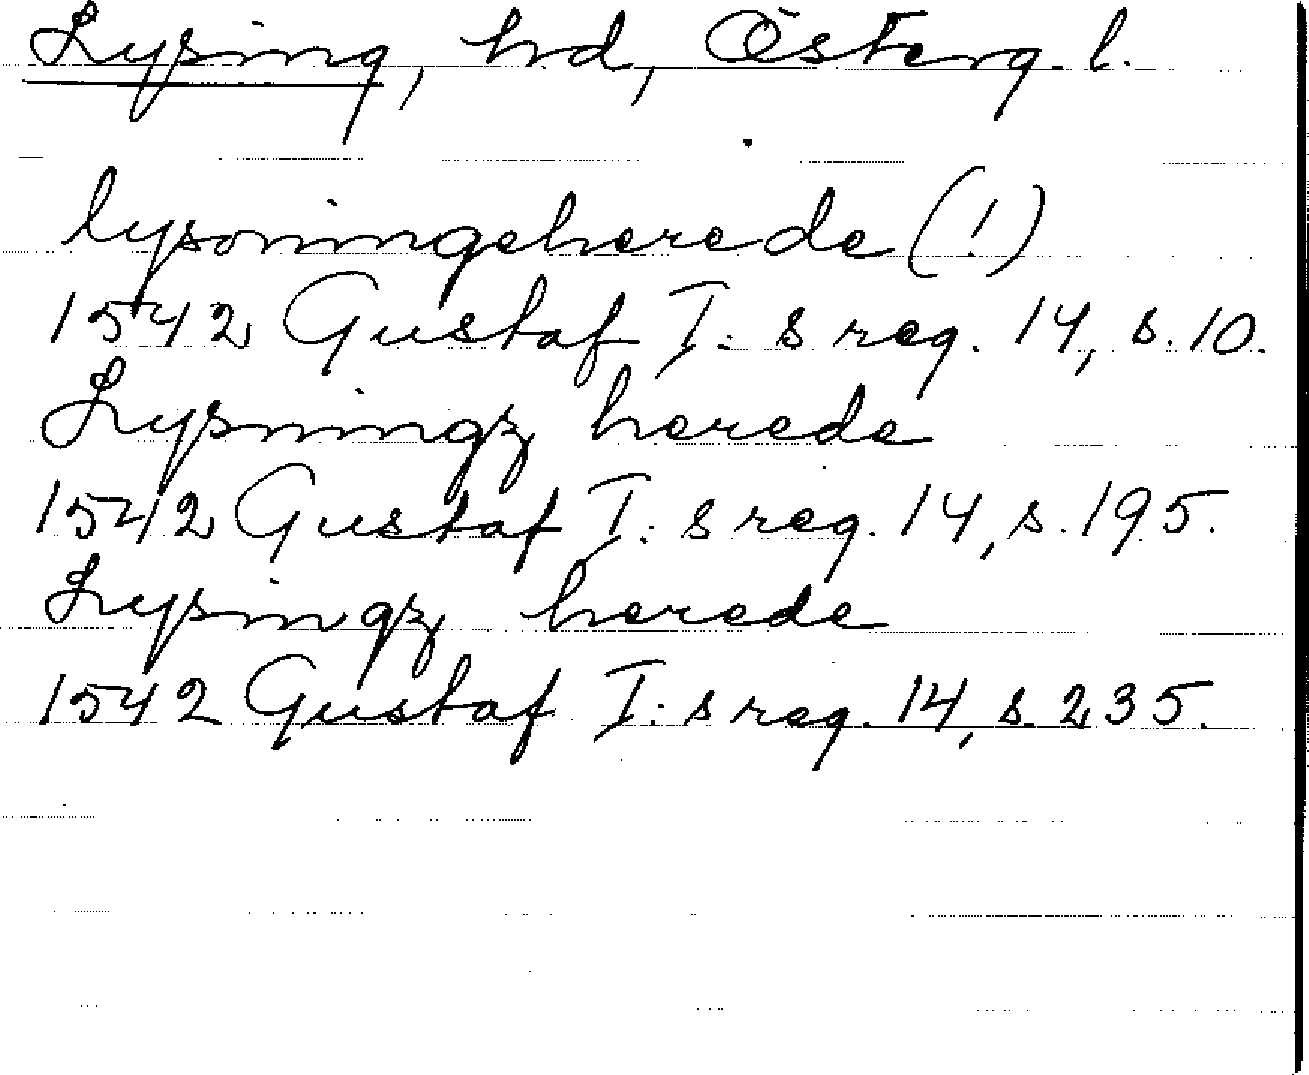 Lysing, hrd, Österg. l.
lysoningeherede (!)
1542 Gustaf I: s reg. 14, s. 10.
Lysningz herede
1542 Gustaf I: s reg. 14, s. 195.
Lysingz herede
1542 Gustaf I: s reg. 14, s. 235.